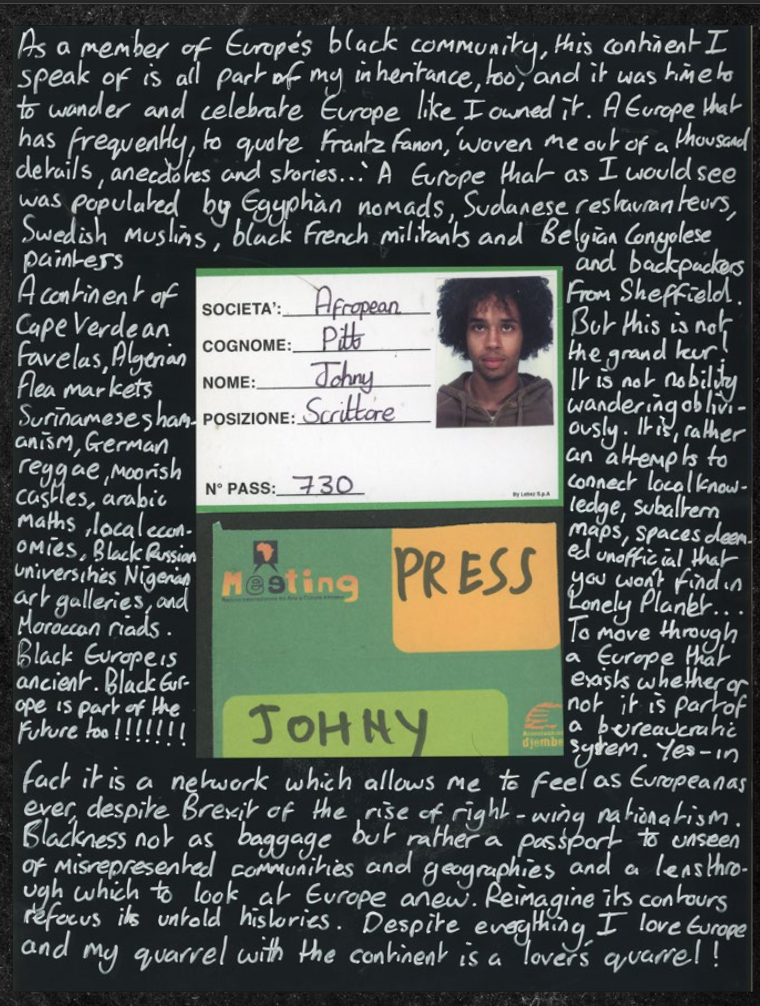 As a member of Europe's black community, this continent I
speak of is all part of my inheritance, too, and it was time to
to wander and celebrate Europe like I owned it. A Europe that
has frequently, to quote Frantz Fanon, 'woven me out of a thousand
details, anecdotes and stories...' A Europe that as I would see
was populated by Egyptian nomads, Sudanese restauranteurs,
Swedish Muslims, black French militants and Belgian Congolese
painters
A continent of
Cape Verdean
favelas, Algerian
flea markets
Surinamese sham-
anism, German
reggae, moorish
castles, arabic
maths, local econ-
omies, Black Russian
universities Nigerian
art galleries, and
Moroccan riads.
Black Europe is
ancient. Black Eur-
ope is part of the
Future too !!!!!!!
SOCIETA': Afropean
COGNOME: Pitts
NOME: Johny
POSIZIONE: Scrittore
N° PASS: 730
By Lebez S.p.A
Meeting
PRESS
JOHNY
djembe
and backpackers
From Sheffield.
But this is not
the grand tour!
It is not nobility
wandering oblivi-
ously. It is, rather
an attempts to
connect local know-
ledge, subaltern
maps, spaces deem-
ed unofficial that
you won't find in
Lonely Planet...
To move through
a Europe that
exists whether or
not it is part of
a bureaucratic
system. Yes - in
fact it is a network which allows me to feel as European as
ever, despite Brexit of the rise of right-wing nationatism.
Blackness not as baggage but rather a passport to unseen
of misrepresented communities and geographies and a lens thro-
ugh which to look at Europe anew. Reimagine its contours
refocus its untold histories. Despite eveything I love Europe
and my quarrel with the continent is a lover's quarrel !